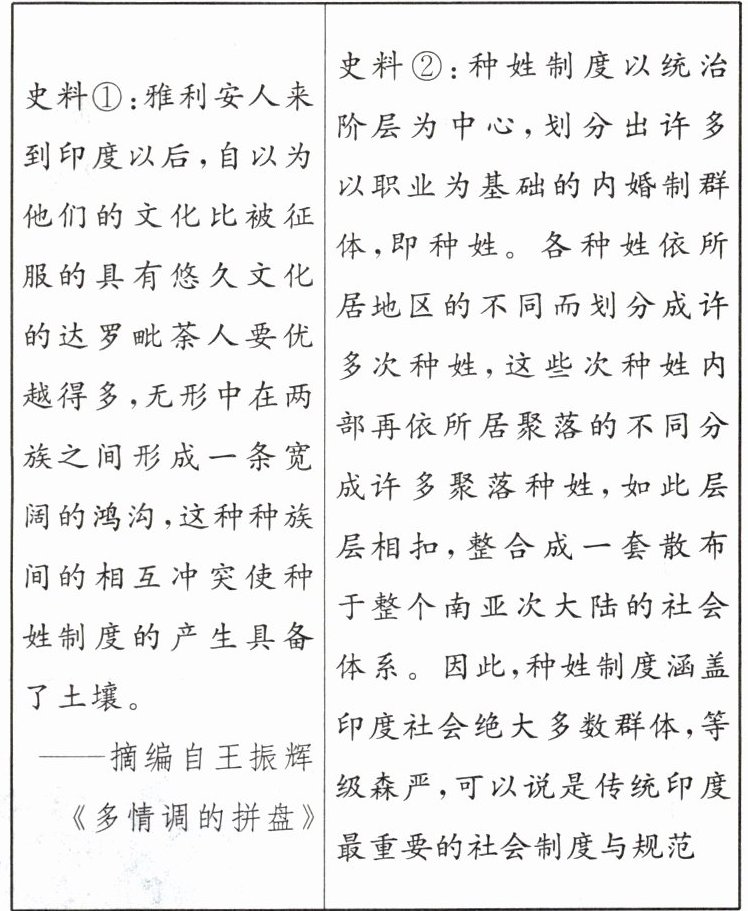 史料①:雅利安人来
到印度以后,自以为
他们的文化比被征
服的具有悠久文化
的达罗毗荼人要优
越得多,无形中在两
族之间形成一条宽
阔的鸿沟,这种种族
间的相互冲突使种
姓制度的产生具备
了土壤。
——摘编自王振辉
《多情调的拼盘》
史料②:种姓制度以统治
阶层为中心,划分出许多
以职业为基础的内婚制群
体,即种姓。各种姓依所
居地区的不同而划分成许
多次种姓,这些次种姓内
部再依所居聚落的不同分
成许多聚落种姓,如此层
层相扣,整合成一套散布
于整个南亚次大陆的社会
体系。因此,种姓制度涵盖
印度社会绝大多数群体,等
级森严,可以说是传统印度
最重要的社会制度与规范